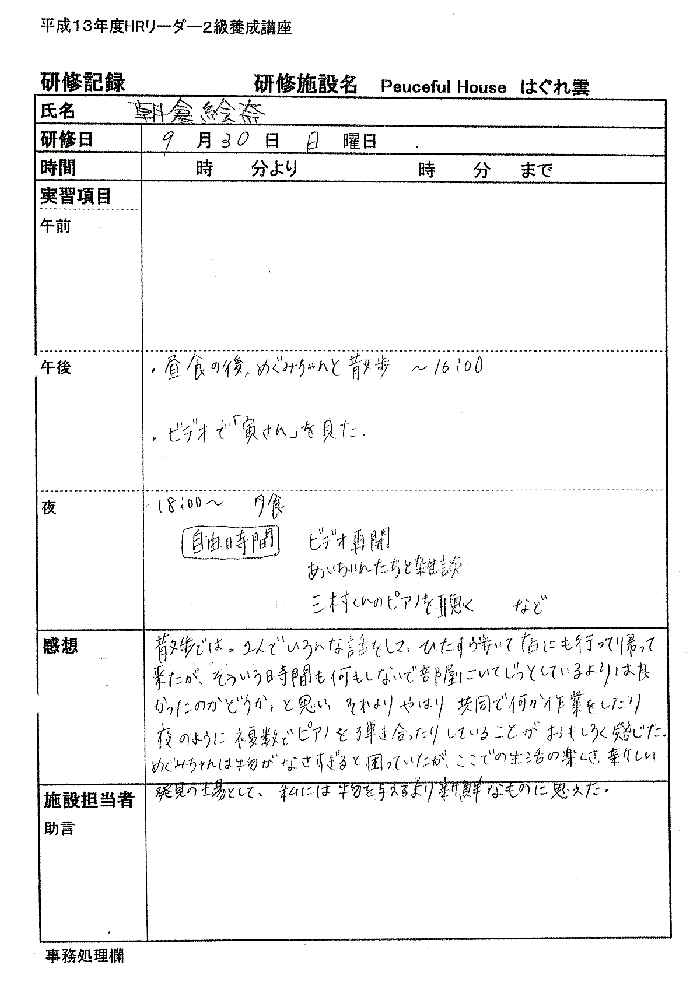 平成13年度HRリーダー2級養成講座
研修記録 研修施設名 Peuceful House はぐれ雲
氏名 朝倉絵奈
研修日 9 月 30 日 日 曜日
時間 時 分より 時 分 まで
実習項目
午前
午後
・昼食の後、めぐみちゃんと散歩 〜16:00
・ビデオで「寅さん」を見た.
夜
18:00〜 夕食
自由時間 ビデオ再開
あいちゃんたちと雑談
三村くんのピアノを聴く など
感想
散歩では。2人でいろんな話をして、ひたすら歩いて 店にも行って帰って
来たが、そういう時間も何もしないで部屋にいてじっとしているよりは良
かったのかどうか、と思い、それよりやはり 共同で何か作業をしたり
夜のように複数でピアノを弾き合ったりしていることがおもしろく感じた.
めぐみちゃんは がなさすぎると困っていたが、ここでの生活の楽しさ、楽しい
発見の場として、私には を与えるより新鮮なものに思えた.
施設担当者
助言
事務処理欄